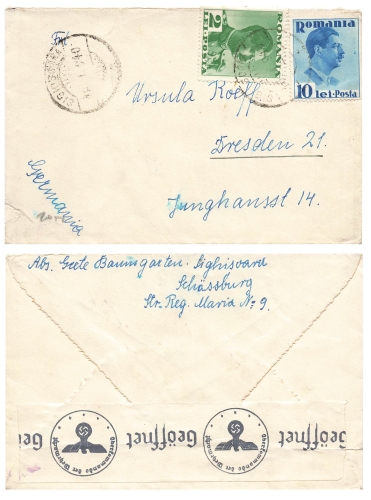 ROMANIA
2
LEI·POSTA
Romania
10 lei·Posta
Ursula Koeff
Dresden 21.
Junghansst 14.
Germania
Abs. Grete Baumgarten. Sighisoara
Schässburg
Str. Reg. Maria No 9.
Geöffnet
Oberkommando der Wehrmacht
Geöffnet
Oberkommando der Wehrmacht
Geöffnet